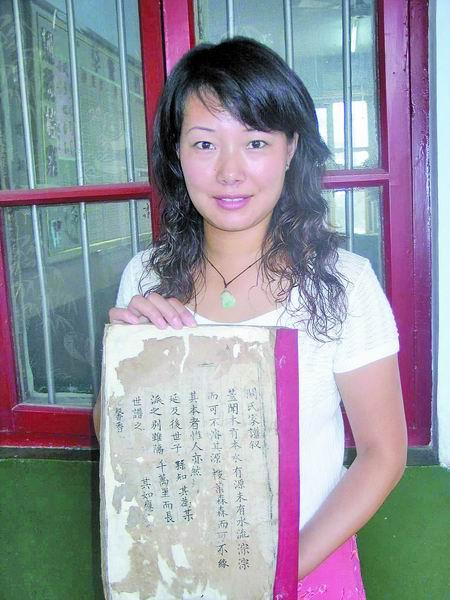 關氏家譜叙
蓋聞木有本水有源未有水流淙淙
而可不溯其源枝葉森森而可不緣
其本者惟人亦然
延及後世子孫知其為某
派之別雖隔千萬里而長
世譜之 其如
馨香